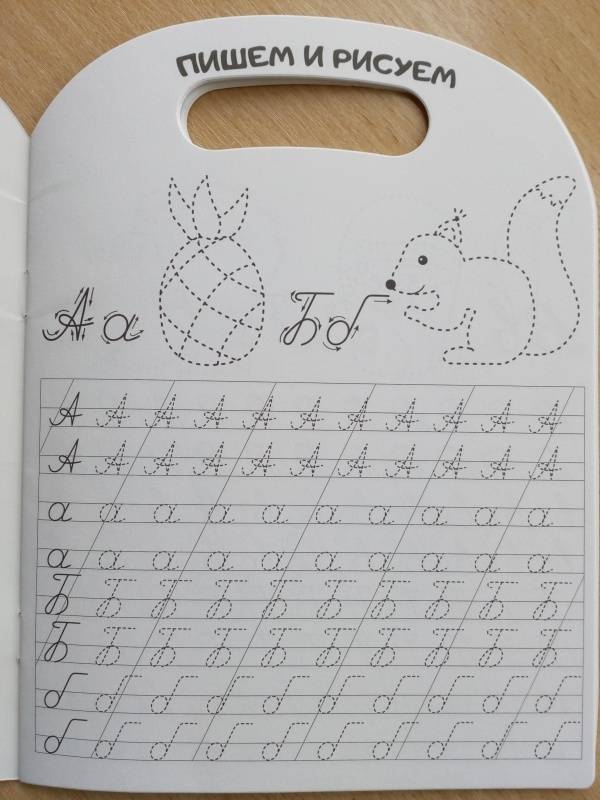 ПИШЕМ И РИСУЕМ
А а Б б
А А А А А А А А А А А
А А А А А А А А А А А
а а а а а а а а а а
а а а а а а а а а а
Б Б Б Б Б Б Б Б Б Б
Б Б Б Б Б Б Б Б Б Б
б б б б б б б б б б
б б б б б б б б б б